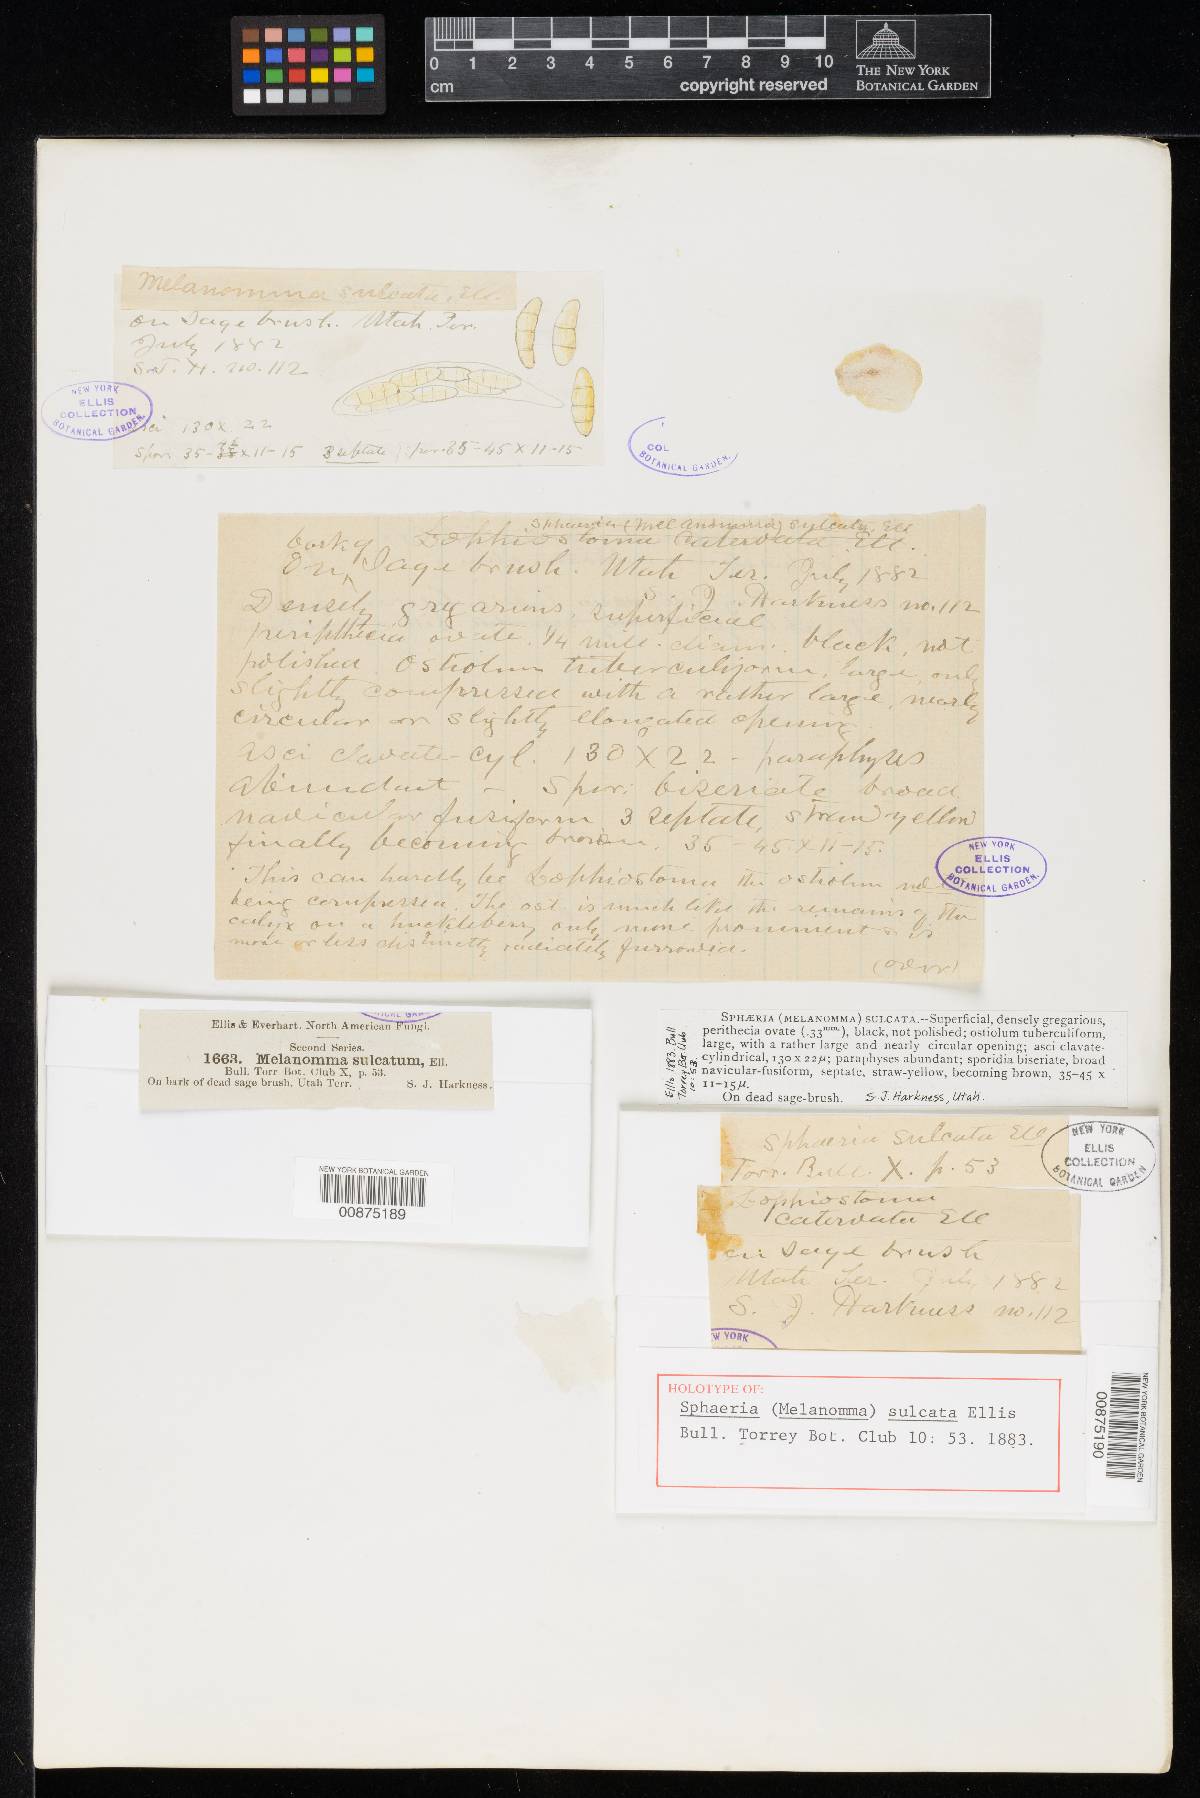 0 1 2 3 4 5 6 7 8 9 10
cm
copyright reserved
THE NEW YORK
BOTANICAL GARDEN
Melanomma sulcata, Ell.
on Sage brush. Utah Ter.
July 1882
S. J. H. no. 112
NEW YORK
ELLIS
COLLECTION
BOTANICAL GARDEN.
asci 130 x 22
spor. 35- x 11-15 3 septate spor. 35-45 x 11-15
COL
BOTANICAL GARDEN.
Sphaeria (Melanomma) sulcata, Ell
Lophiostoma catervata Ell.
bark of
On Sage brush. Utah Ter. July 1882
S. J. Harkness no. 112
Densely gregarious, superficial
perithecia ovate, 1/4 mill. diam. black, not
polished. Ostiolum tuberculiform, large, only
slightly compressed with a rather large, nearly
circular or slightly elongated opening.
asci clavate-cyl. 130 x 22 - paraphyses
abundant - Spor. biseriate broad
navicular fusiform 3 septate, straw yellow
finally becoming brown. 35-45 x 11-15.
This can hardly be Lophiostoma the ostiolum not
being compressed. The ost. is much like the remains of the
calyx on a huckleberry only more prominent & is
more or less distinctly radiately furrowed.
(over)
NEW YORK
ELLIS
COLLECTION
BOTANICAL GARDEN.
Ellis & Everhart. North American Fungi.
Second Series.
1663. Melanomma sulcatum, Ell.
Bull. Torr Bot. Club X, p. 53.
On bark of dead sage brush, Utah Terr. S. J. Harkness.
NEW YORK BOTANICAL GARDEN
00875189
Ellis 1883 Bull
Torrey Bot. Club
10: 53.
SPHÆRIA (MELANOMMA) SULCATA.--Superficial, densely gregarious,
perithecia ovate (.33mm.), black, not polished; ostiolum tuberculiform,
large, with a rather large and nearly circular opening; asci clavate-
cylindrical, 130 x 22 μ; paraphyses abundant; sporidia biseriate, broad
navicular-fusiform, septate, straw-yellow, becoming brown, 35-45 x
11-15 μ.
On dead sage-brush. S. J. Harkness, Utah.
Sphaeria sulcata Ell
Torr. Bull. X. p. 53
NEW YORK
ELLIS
COLLECTION
BOTANICAL GARDEN
Lophiostoma
catervata Ell
on Sage brush
Utah Ter. July 1882
S. J. Harkness no. 112
W YORK
HOLOTYPE OF:
Sphaeria (Melanomma) sulcata Ellis
Bull. Torrey Bot. Club 10: 53. 1883.
NEW YORK BOTANICAL GARDEN
00875190